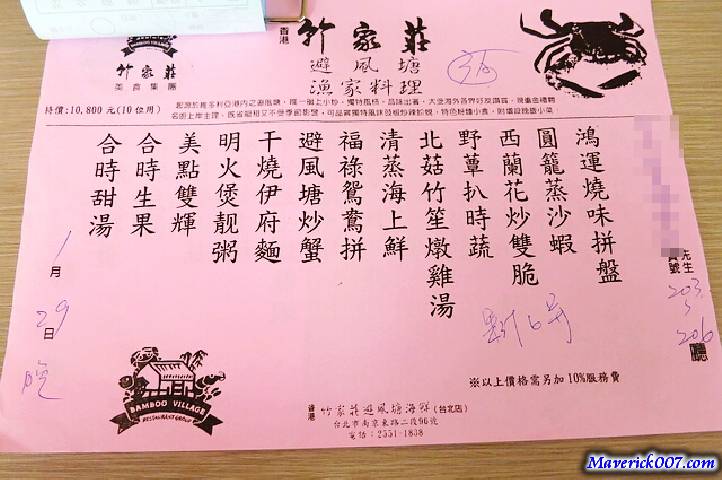 BAMBOO VILLAGE
竹家莊
美食集團
香港
竹家莊
避風塘
漁家料理
特價:10,800元(10位用)
鴻運燒味拼盤
圓籠蒸沙蝦
西蘭花炒雙脆
野蕈扒時蔬
北菇竹笙燉雞湯
清蒸海上鮮
福祿鴛鴦拼
避風塘炒蟹
干燒伊府麵
明火煲靚粥
美點雙輝
合時生果
合時甜湯
先生
號
203
206
1月29日
晚
※以上價格需另加10%服務費
BAMBOO VILLAGE
RESTAURANT GROUP
香港 竹家莊避風塘海鮮(台北店)
台北市南京東路二段96號
電話:2551-1838
Maverick007.com